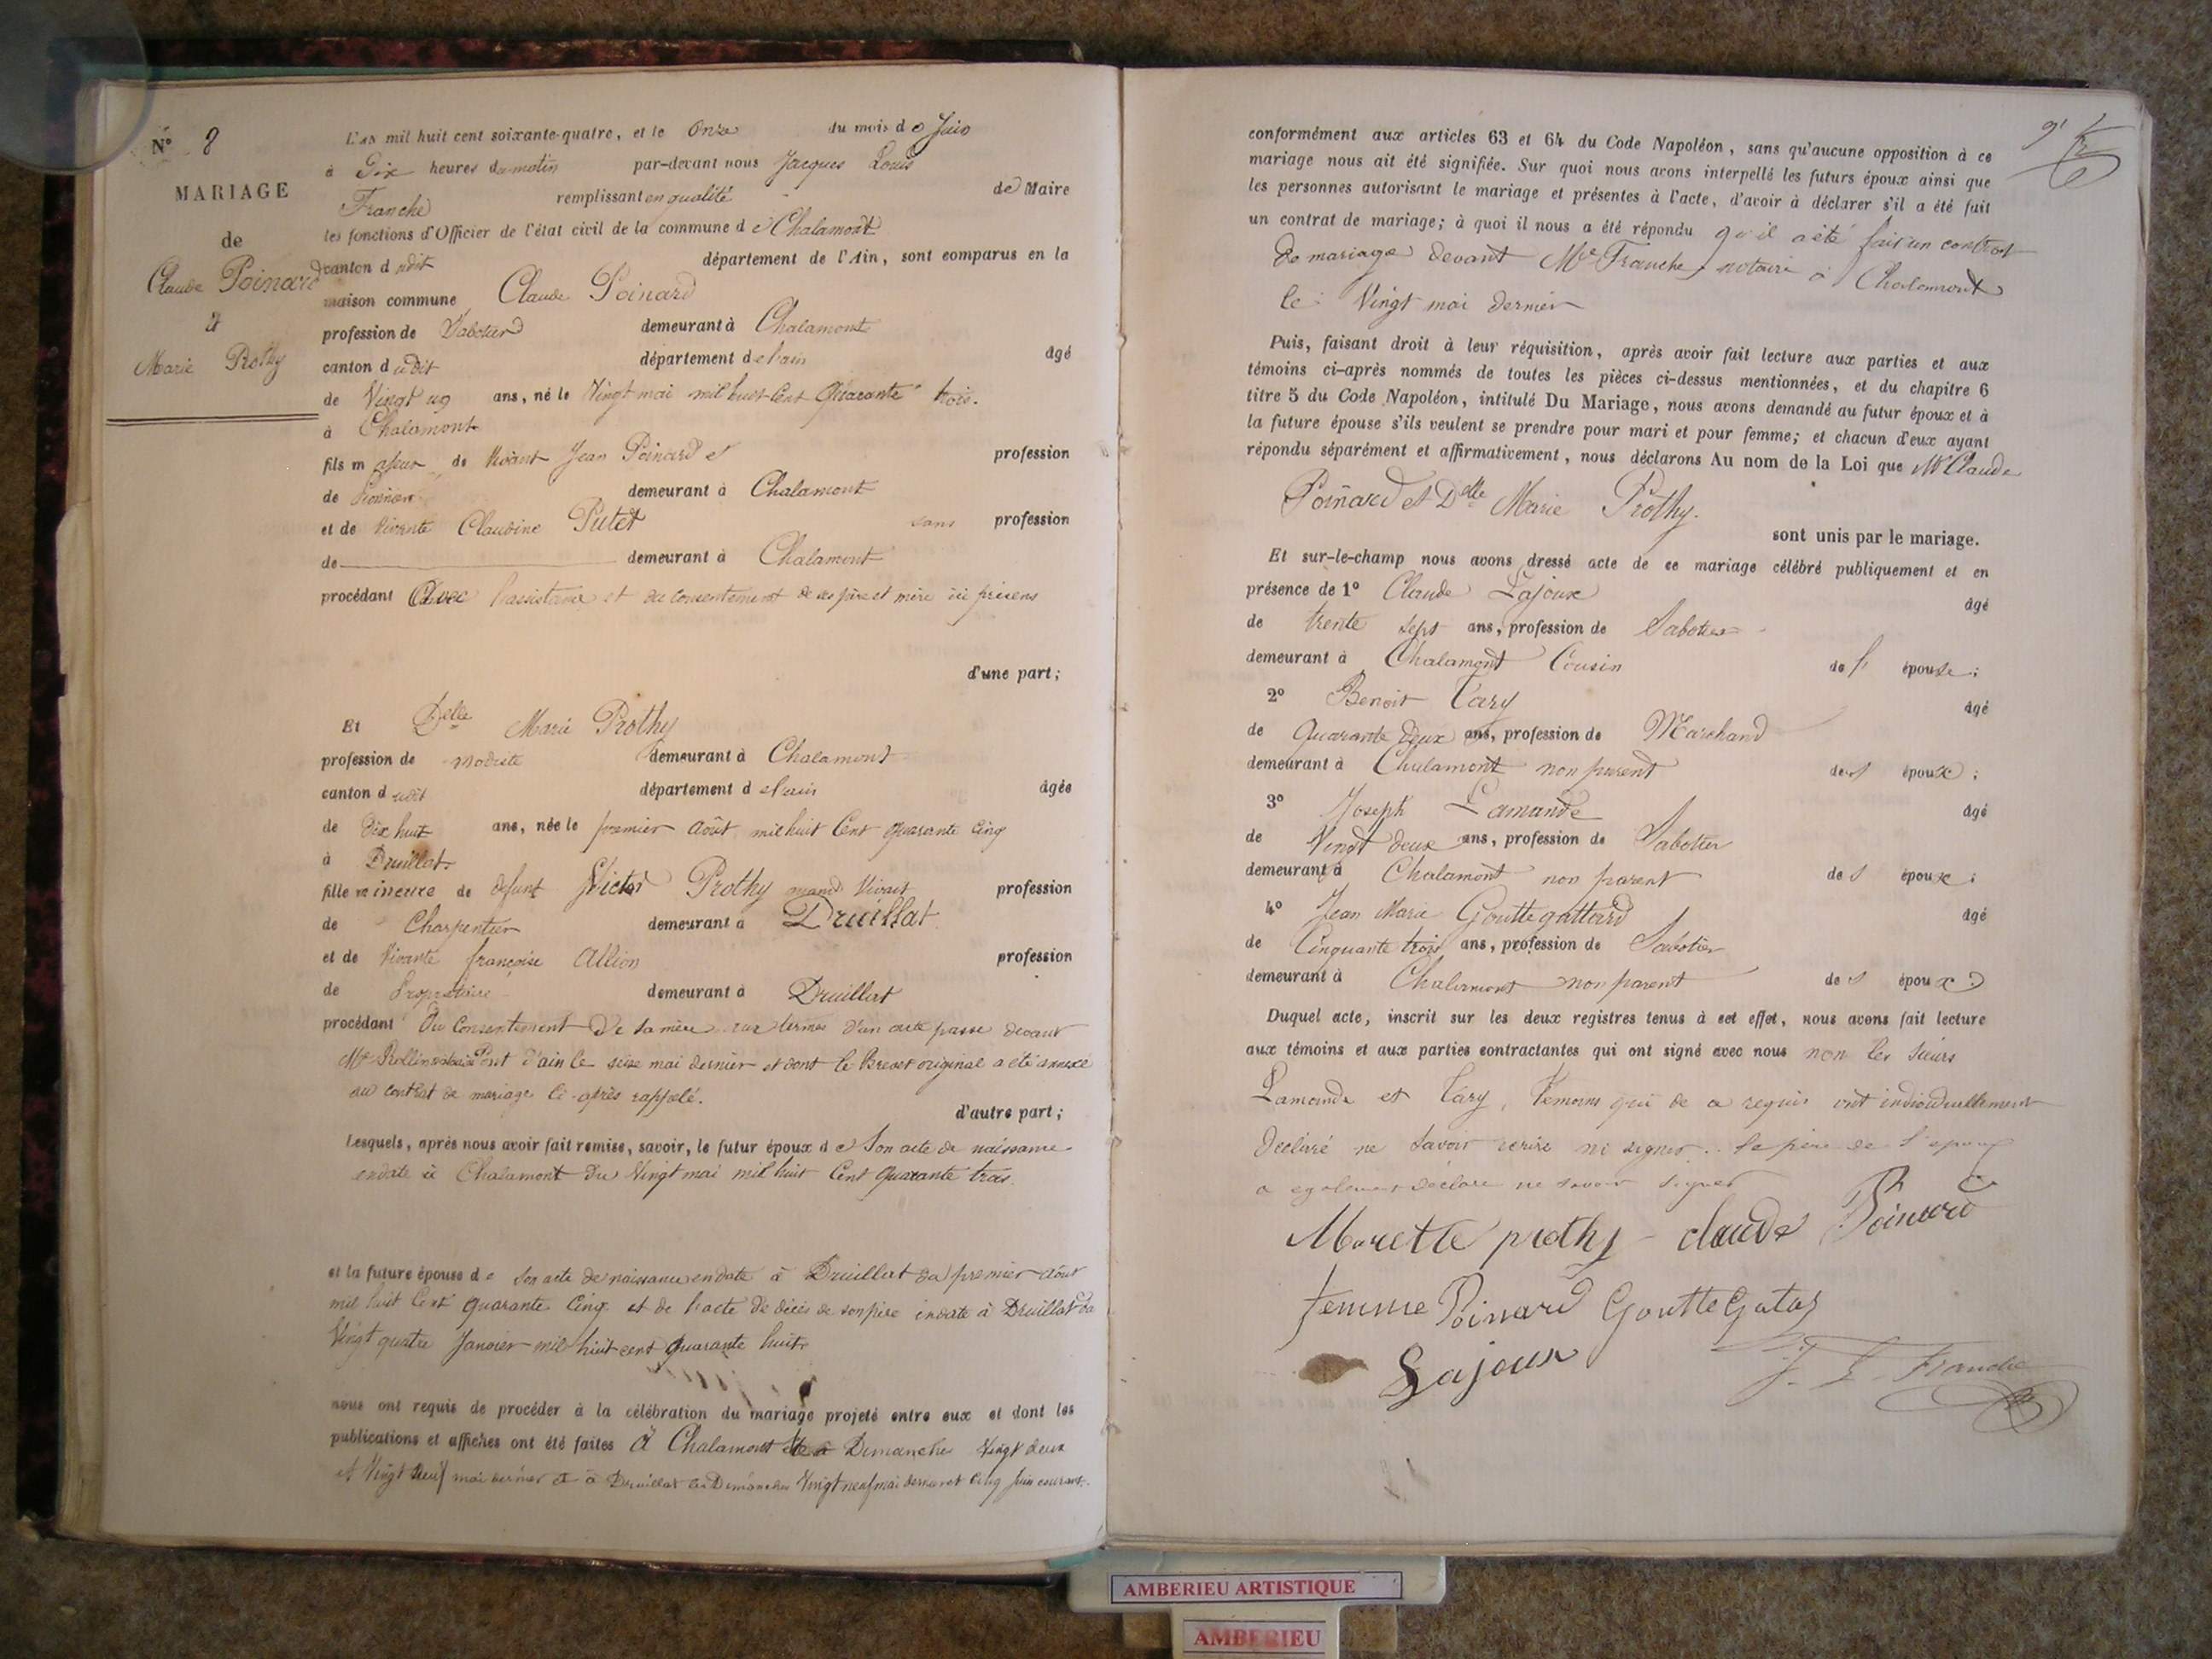 N° 8
MARIAGE
de
Claude Poinard
et
Marie Prothy
L'an mil huit cent soixante-quatre, et le onze du mois de Juin
à Dix heures du matin par-devant nous Jacques Louis
Franche remplissant en qualité de Maire
les fonctions d'Officier de l'état civil de la commune de Chalamont
canton dudit département de l'Ain, sont comparus en la
maison commune Claude Poinard
profession de Sabotier demeurant à Chalamont
canton dudit département de l'ain âgé
de Vingt un ans, né le Vingt mai mil huit Cent Quarante trois.
à Chalamont
fils majeur de Vivant Jean Poinard et profession
de demeurant à Chalamont
et de Vivante Claudine Putet sans profession
de demeurant à Chalamont
procédant Avec l'assistance et du consentement de ses père et mère ici présens
d'une part;
Et Delle Marie Prothy
profession de modiste demeurant à Chalamont
canton dudit département de l'ain âgée
de Dix huit ans, née le premier Août mil huit Cent quarante Cinq
à Druillat.
fille mineure de défunt Victor Prothy quand Vivait profession
de Charpentier demeurant à Druillat
et de Vivante françoise Allion profession
de Propriétaire demeurant à Druillat
procédant Du Consentement De sa mère aux termes d'un acte passé devant
Me Rollin notaire Pont d'ain le seize mai dernier et dont le Brevet original a été annexé
au contrat de mariage Ci-après rappelé.
d'autre part;
Lesquels, après nous avoir fait remise, savoir, le futur époux de Son acte de naissance
en date à Chalamont Du Vingt mai mil huit Cent quarante trois.
et la future épouse de son acte de naissance en date à Druillat du premier Août
mil huit Cent quarante Cinq et de l'acte de décès de son père en date à Druillat du
Vingt quatre Janvier mil huit cent quarante huit
nous ont requis de procéder à la célébration du mariage projeté entre eux et dont les
publications et affiches ont été faites à Chalamont Dimanches Vingt deux
et Vingt neuf mai dernier et à Druillat les Dimanches Vingt neuf mai dernier et Cinq Juin courant.
conformément aux articles 63 et 64 du Code Napoléon, sans qu'aucune opposition à ce
mariage nous ait été signifiée. Sur quoi nous avons interpellé les futurs époux ainsi que
les personnes autorisant le mariage et présentes à l'acte, d'avoir à déclarer s'il a été fait
un contrat de mariage; à quoi il nous a été répondu qu'il a été fait un contrat
de mariage devant Me Franche, notaire à Chalamont
le Vingt mai dernier
Puis, faisant droit à leur réquisition, après avoir fait lecture aux parties et aux
témoins ci-après nommés de toutes les pièces ci-dessus mentionnées, et du chapitre 6
titre 5 du Code Napoléon, intitulé Du Mariage, nous avons demandé au futur époux et à
la future épouse s'ils veulent se prendre pour mari et pour femme; et chacun d'eux ayant
répondu séparément et affirmativement, nous déclarons Au nom de la Loi que Mr Claude
Poinard et Delle Marie Prothy.
sont unis par le mariage.
Et sur-le-champ nous avons dressé acte de ce mariage célébré publiquement et en
présence de 1° Claude Lajoux âgé
de trente sept ans, profession de Sabotier
demeurant à Chalamont Cousin de l' épouse;
2° Benoit Cary âgé
de Quarante Deux ans, profession de Marchand
demeurant à Chalamont non parent des époux;
3° Joseph Lamande âgé
de Vingt deux ans, profession de Sabotier
demeurant à Chalamont non parent des époux;
4° Jean Marie Gouttegattard âgé
de Cinquante trois ans, profession de Sabotier
demeurant à Chalamont non parent des époux
Duquel acte, inscrit sur les deux registres tenus à cet effet, nous avons fait lecture
aux témoins et aux parties contractantes qui ont signé avec nous non les sieurs
Lamande et Cary, témoins qui de ce requis ont individuellement
Déclaré ne savoir écrire ni signer. Le père de l'époux
a egalement déclaré ne savoir signer
Marette prothy claude Poinard
femme Poinard GoutteGatas
Lajoux J. L. Franche
AMBERIEU ARTISTIQUE
AMBERIEU